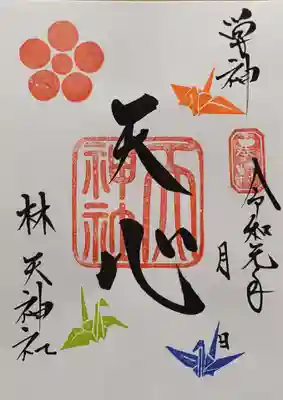 学神
奉拝
令和元年
月 日
天心
天神社
林 天神社